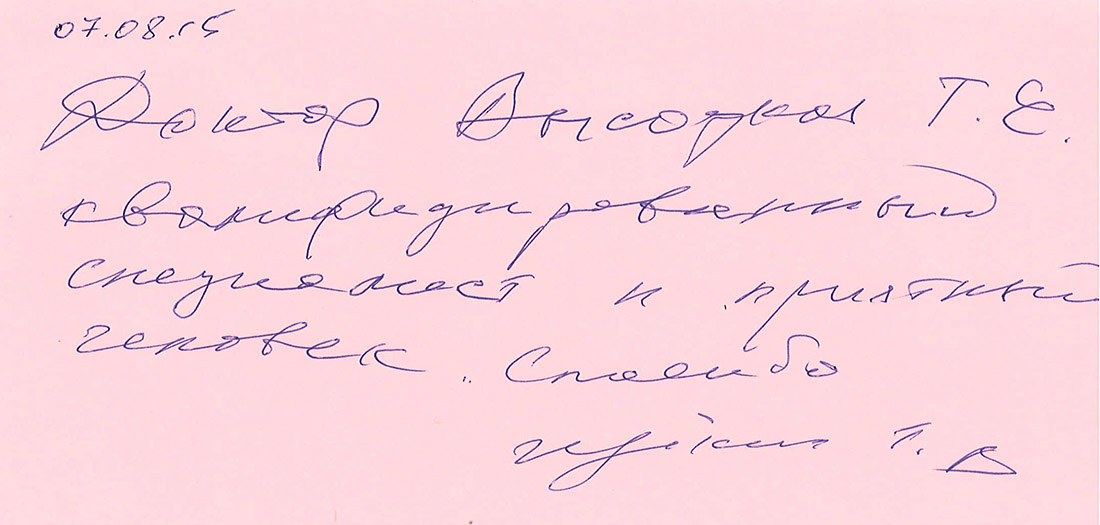 07.08.15
Доктор Высоцкая Т. Е.
квалифицированный
специалист и приятный
человек. Спасибо
Т. В